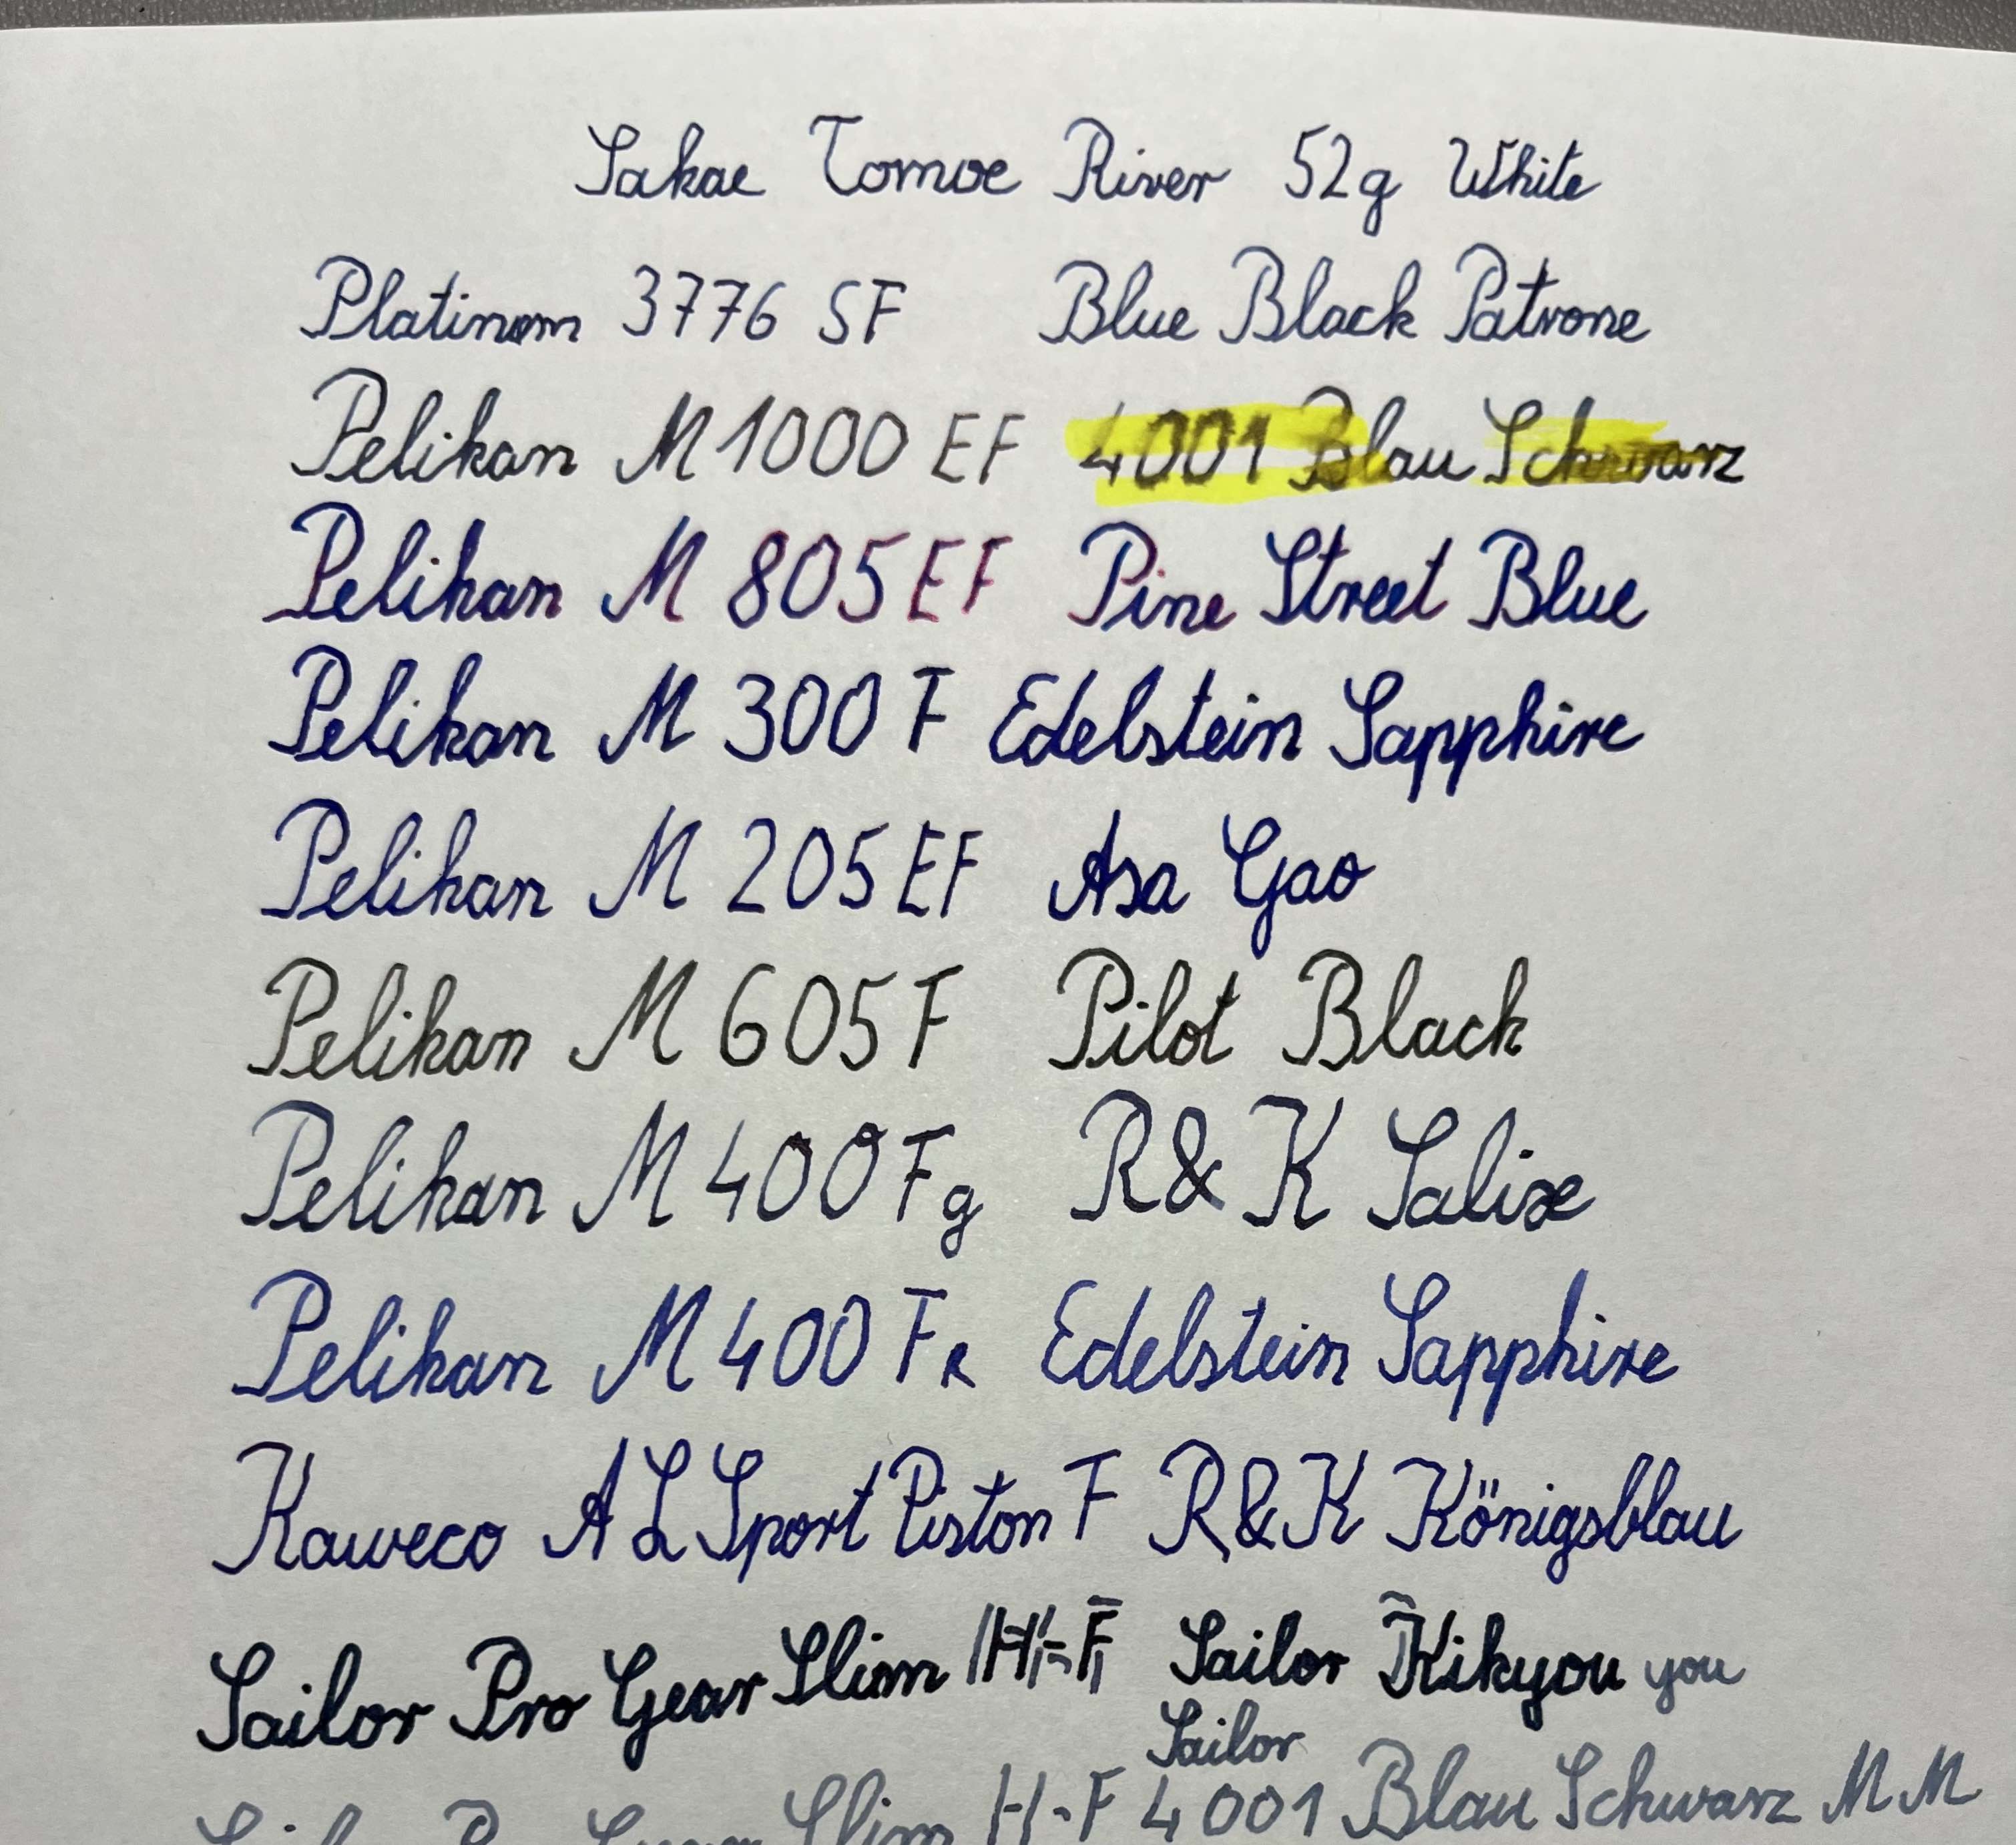 Sakae Tomoe River 52g White
Platinum 3776 SF Blue Black Patrone
Pelikan M1000 EF 4001 Blau Schwarz
Pelikan M 805 EF Pine Street Blue
Pelikan M 300 F Edelstein Sapphire
Pelikan M 205 EF Asa Gao
Pelikan M 605 F Pilot Black
Pelikan M 400 Fg R&K Salix
Pelikan M 400 FR Edelstein Sapphire
Kaweco AL Sport Piston F R&K Königsblau
Sailor Pro Gear Slim H-F Sailor Kikyou you
Sailor
Slim H-F 4001 Blau Schwarz MM